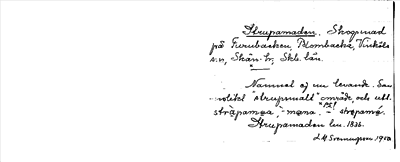 Strupamaden. Skogsmad
på Furubacken, Blombacka, Vinköls
sn, Skån. hr, Skbl. län.
Namnet ej nu levande. San-
nolikt "strupsmalt" område och utt.
stråpamea, -mana, - stropamé.
Strupamaden lm. 1836.